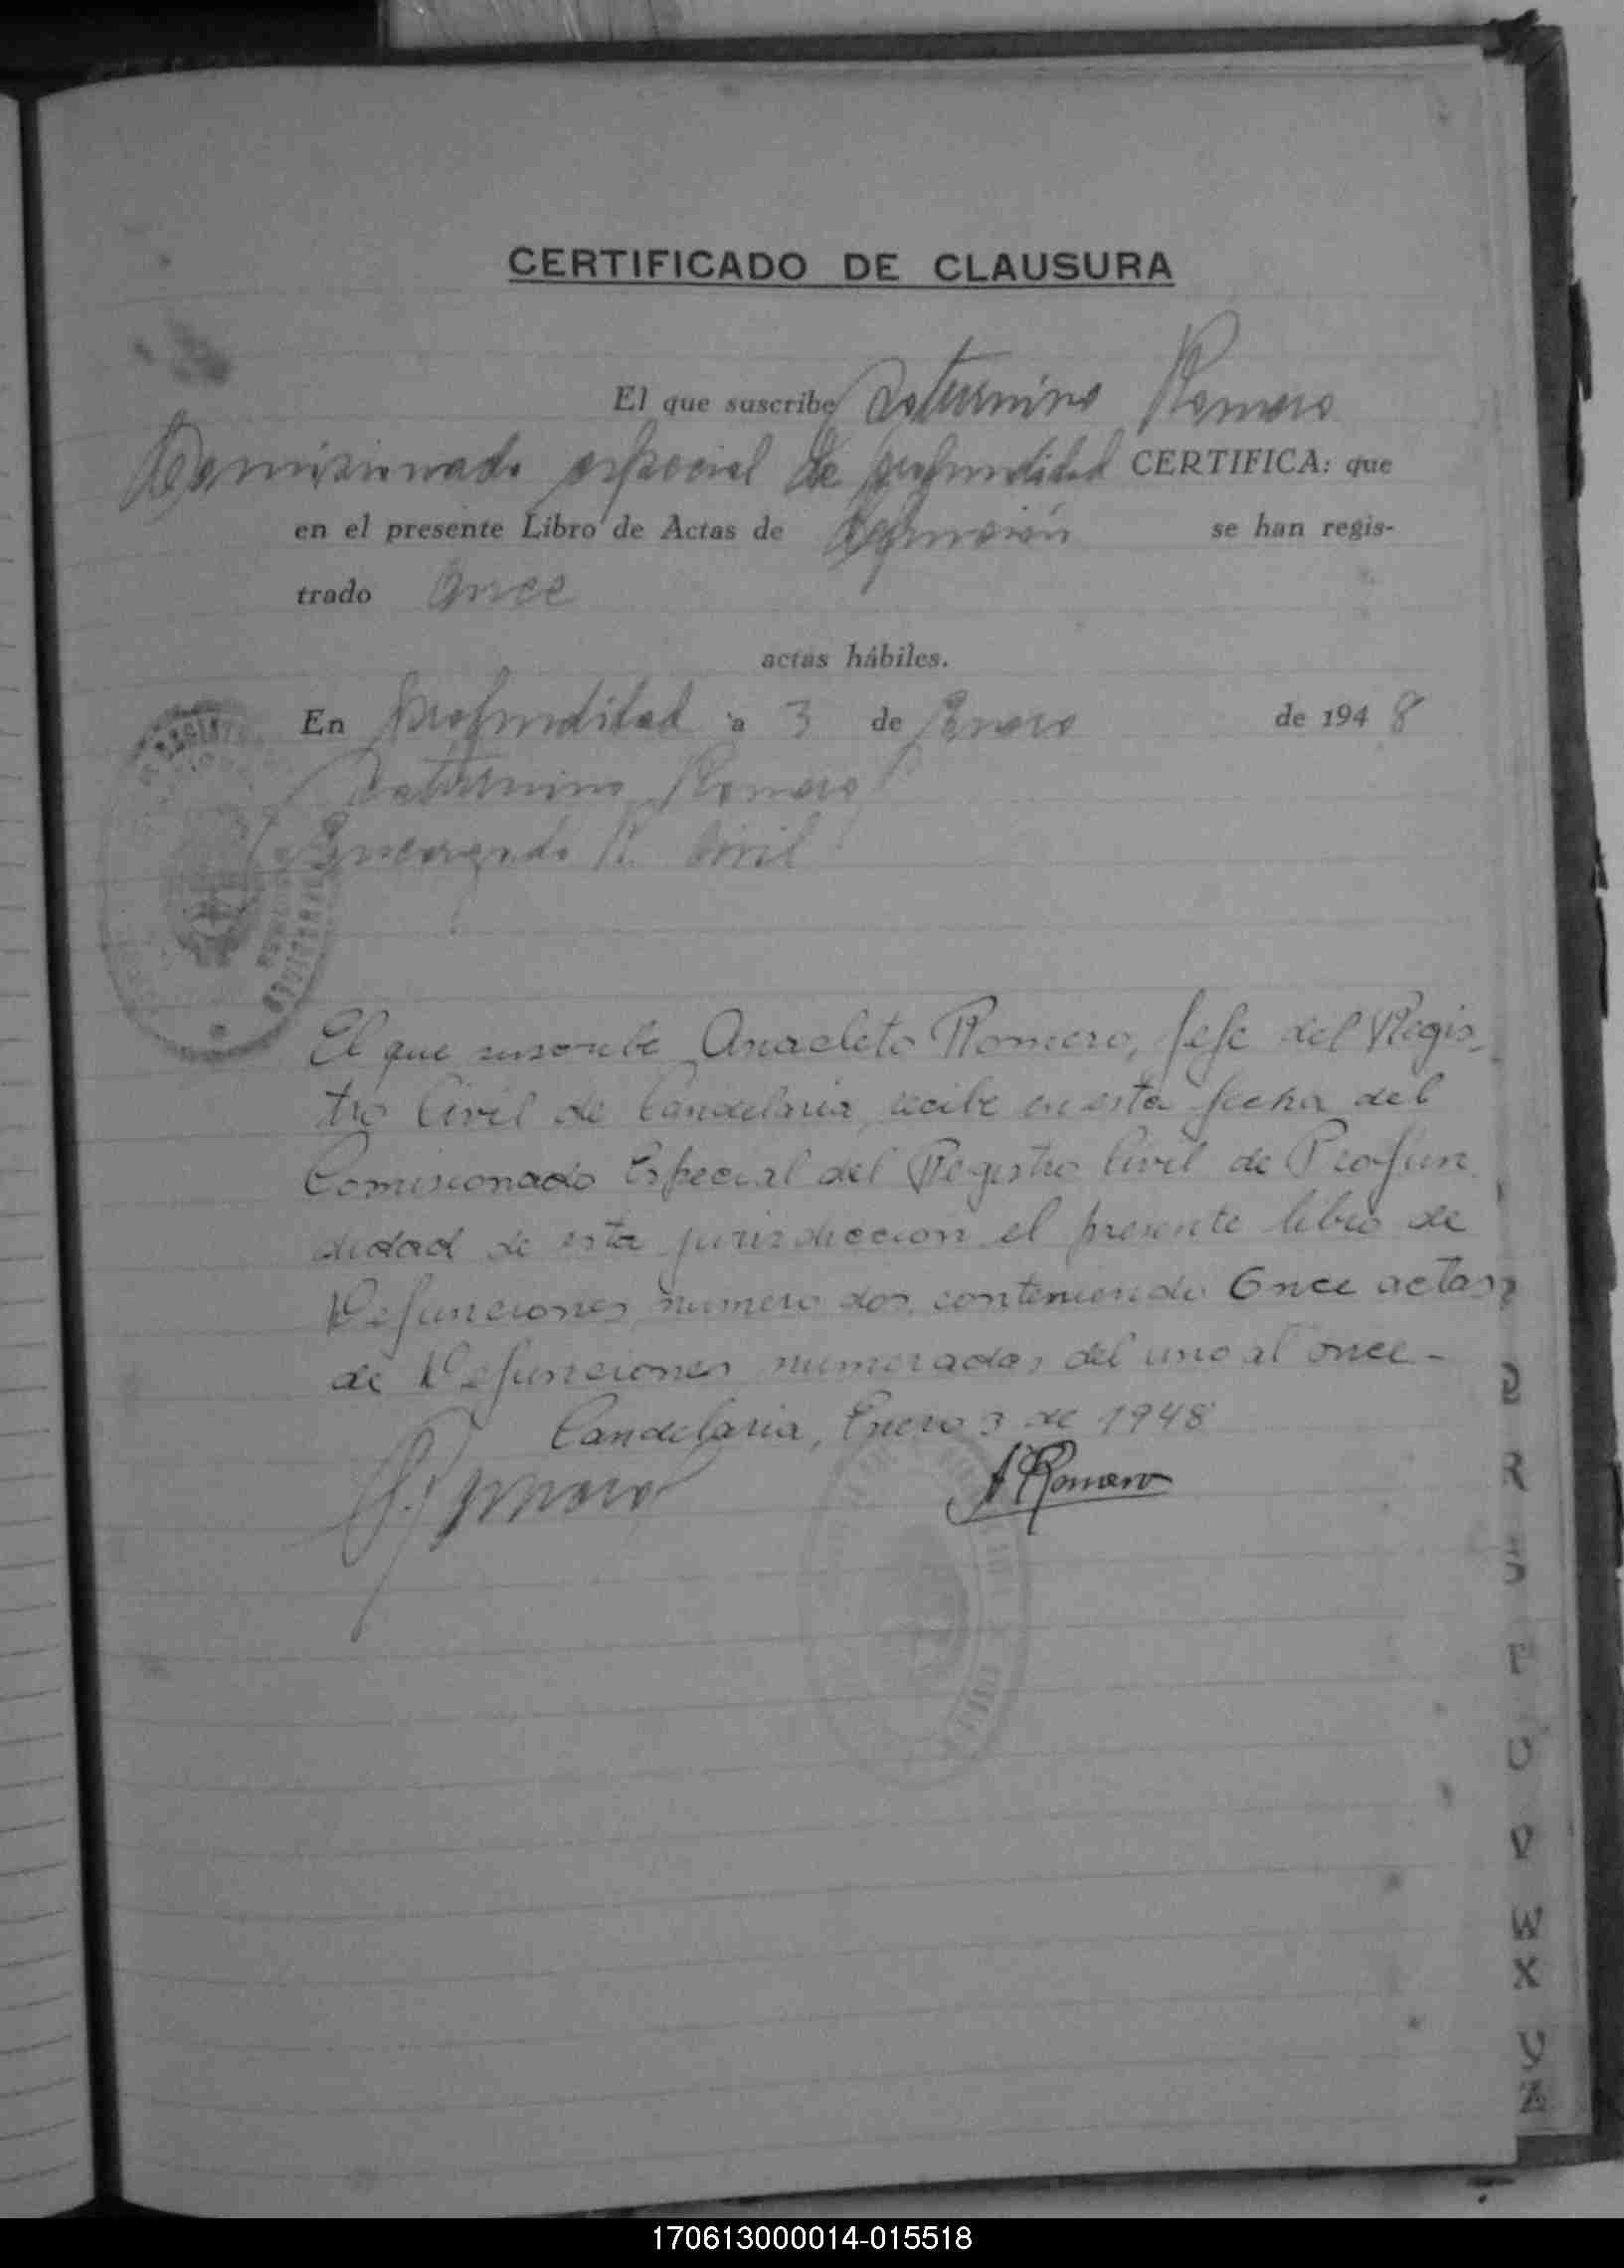 CERTIFICADO DE CLAUSURA
El que suscribe Saturnino Romero
Comisionado especial de profundidad CERTIFICA: que
en el presente Libro de Actas de Defunción se han regis-
trado Once
actas hábiles.
En profundidad a 3 de Enero de 1948
Saturnino Romero
Encargado R. Civil
El que suscribe Anacleto Romero, Jefe del Regis-
tro Civil de Candelaria, recibe en esta fecha del
Comisionado Especial del Registro Civil de Profun
didad de esta jurisdiccion el presente libro de
Defunciones numero dos, conteniendo Once actas
de Defunciones numeradas del uno al once-
Candelaria, Enero 3 de 1948
S. Romero
A Romero
R
S
T
U
V
W
X
Z
170613000014-015518